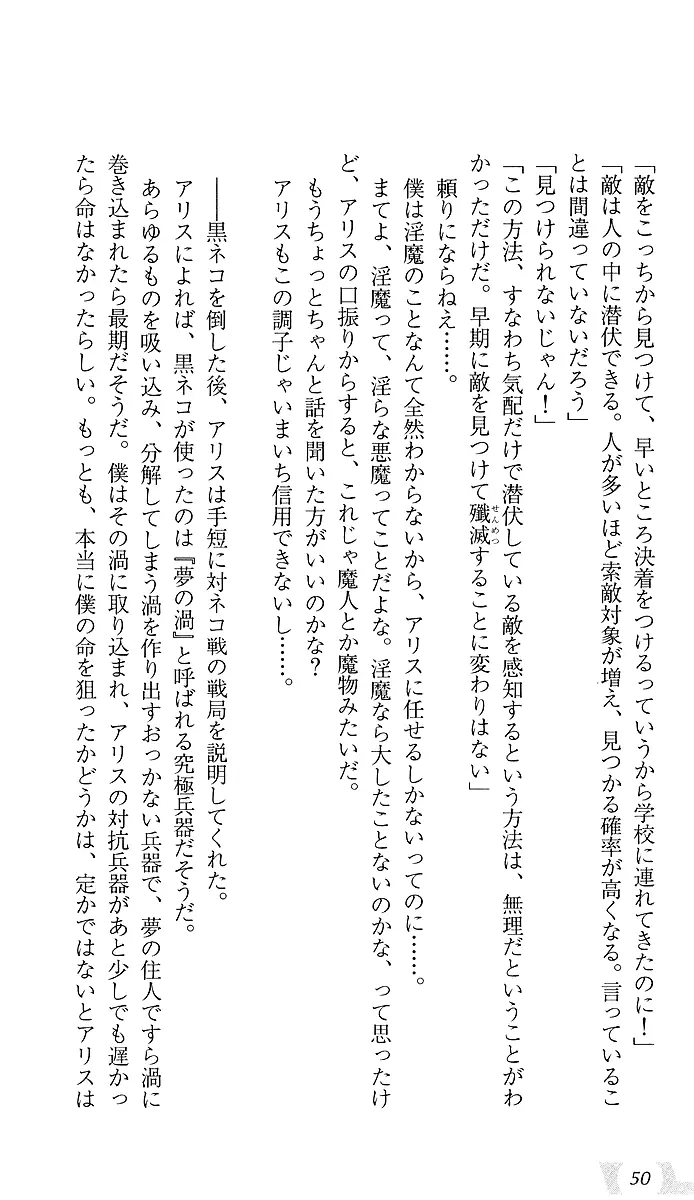 「敵をこっちから見つけて、早いところ決着をつけるっていうから学校に連れてきたのに！」
「敵は人の中に潜伏できる。人が多いほど索敵対象が増え、見つかる確率が高くなる。言っているこ
とは間違っていないだろう」
「見つけられないじゃん！」
「この方法、すなわち気配だけで潜伏している敵を感知するという方法は、無理だということがわ
かっただけだ。早期に敵を見つけて殲滅することに変わりはない」
せんめつ
頼りにならねえ……。
僕は淫魔のことなんて全然わからないから、アリスに任せるしかないってのに……。
まてよ、淫魔って、淫らな悪魔ってことだよな。淫魔なら大したことないのかな、って思ったけ
ど、アリスの口振りからすると、これじゃ魔人とか魔物みたいだ。
もうちょっとちゃんと話を聞いた方がいいのかな？
アリスもこの調子じゃいまいち信用できないし……。
――黒ネコを倒した後、アリスは手短に対ネコ戦の戦局を説明してくれた。
アリスによれば、黒ネコが使ったのは『夢の渦』と呼ばれる究極兵器だそうだ。
あらゆるものを吸い込み、分解してしまう渦を作り出すおっかない兵器で、夢の住人ですら渦に
巻き込まれたら最期だそうだ。僕はその渦に取り込まれ、アリスの対抗兵器があと少しでも遅かっ
たら命はなかったらしい。もっとも、本当に僕の命を狙ったかどうかは、定かではないとアリスは
50